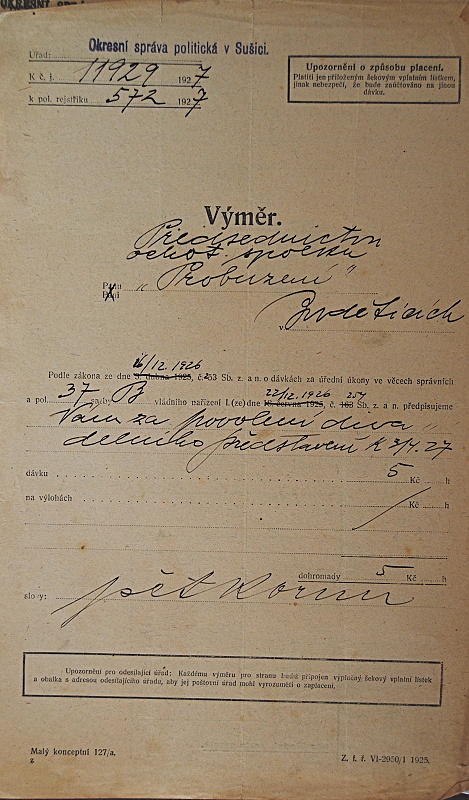 Okresní správa politická v Sušici.
Úřad:
K č. j. 11929 1927
k pol. rejstříku 572 1927
Upozornění o způsobu placení.
Platiti jen přiloženým šekovým vplatním lístkem,
jinak nebezpečí, že bude zaúčtováno na jinou
dávku.
Výměr.
Předsednictvu
ochot. spolku
Panu „Probuzení"
Paní
v
12. 1926
Podle zákona ze dne 3. dubna 1925, č. 53 Sb. z. a n. o dávkách za úřední úkony ve věcech správních
22/12. 1926 254
a pol. 37 sazby B vládního nařízení I. (ze) dne 18. června 1925, č. 163 Sb. z. a n. předpisujeme
Vám za povolení diva„
delního představení k 3/4. 27
dávku 5 Kč h
na výlohách Kč h
dohromady 5 Kč h
slovy: pět korun
Upozornění pro odesílající úřad: Každému výměru pro stranu budiž připojen vyplněný šekový vplatní lístek
a obálka s adresou odesílajícího úřadu, aby jej poštovní úřad mohl vyrozuměti o zaplacení.
Malý konceptní 127/a.
Z. t. ř. VI-2950/1 1925.